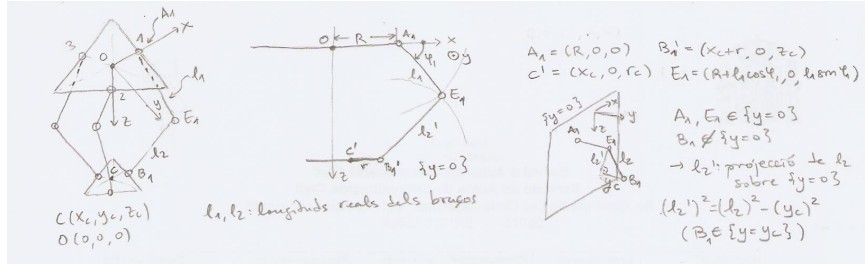 A₁
x
3
1
O
l₁
2
y
z
E₁
l₂
C
B₁
C(x_c, y_c, z_c)
O(0,0,0)
O
R
A₁
x
φ₁
y
l₁
E₁
l₂'
C'
r
B₁'
{y=0}
z
l₁, l₂: longituds reals dels braços
A₁ = (R, 0, 0)
B₁' = (x_c+r, 0, z_c)
C' = (x_c, 0, r_c)
E₁ = (R+l₁cosφ₁, 0, l₁sinφ₁)
{y=0}
x
y
z
A₁
E₁
l₂'
l₂
y_c
B₁
A₁, E₁ ∈ {y=0}
B₁ ∉ {y=0}
→ l₂': projecció de l₂
sobre {y=0}
(l₂')² = (l₂)² - (y_c)²
(B₁ ∈ {y=y_c})